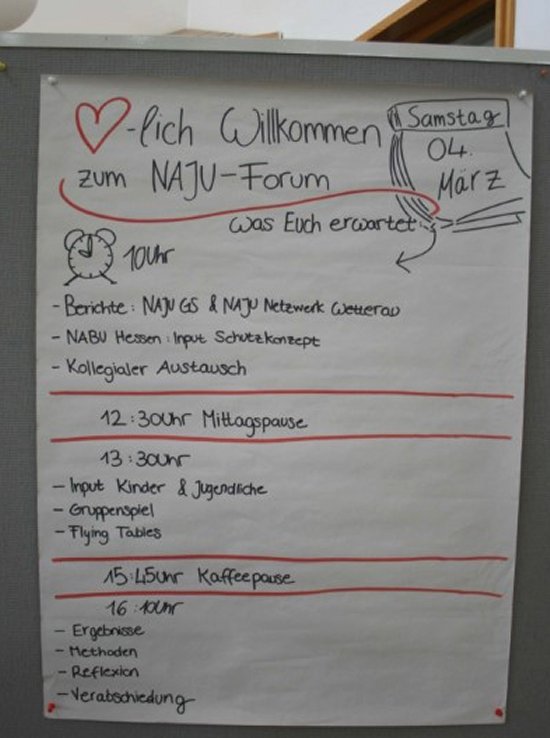 -lich Willkommen
zum NAJU-Forum
Samstag
04.
März
Was Euch erwartet:
10Uhr
- Berichte: NAJU GS & NAJU Netzwerk Wetterau
- NABU Hessen: Input Schutzkonzept
- Kollegialer Austausch
12:30Uhr Mittagspause
13:30Uhr
- Input Kinder & Jugendliche
- Gruppenspiel
- Flying Tables
15:45Uhr Kaffeepause
16:10Uhr
- Ergebnisse
- Methoden
- Reflexion
- Verabschiedung